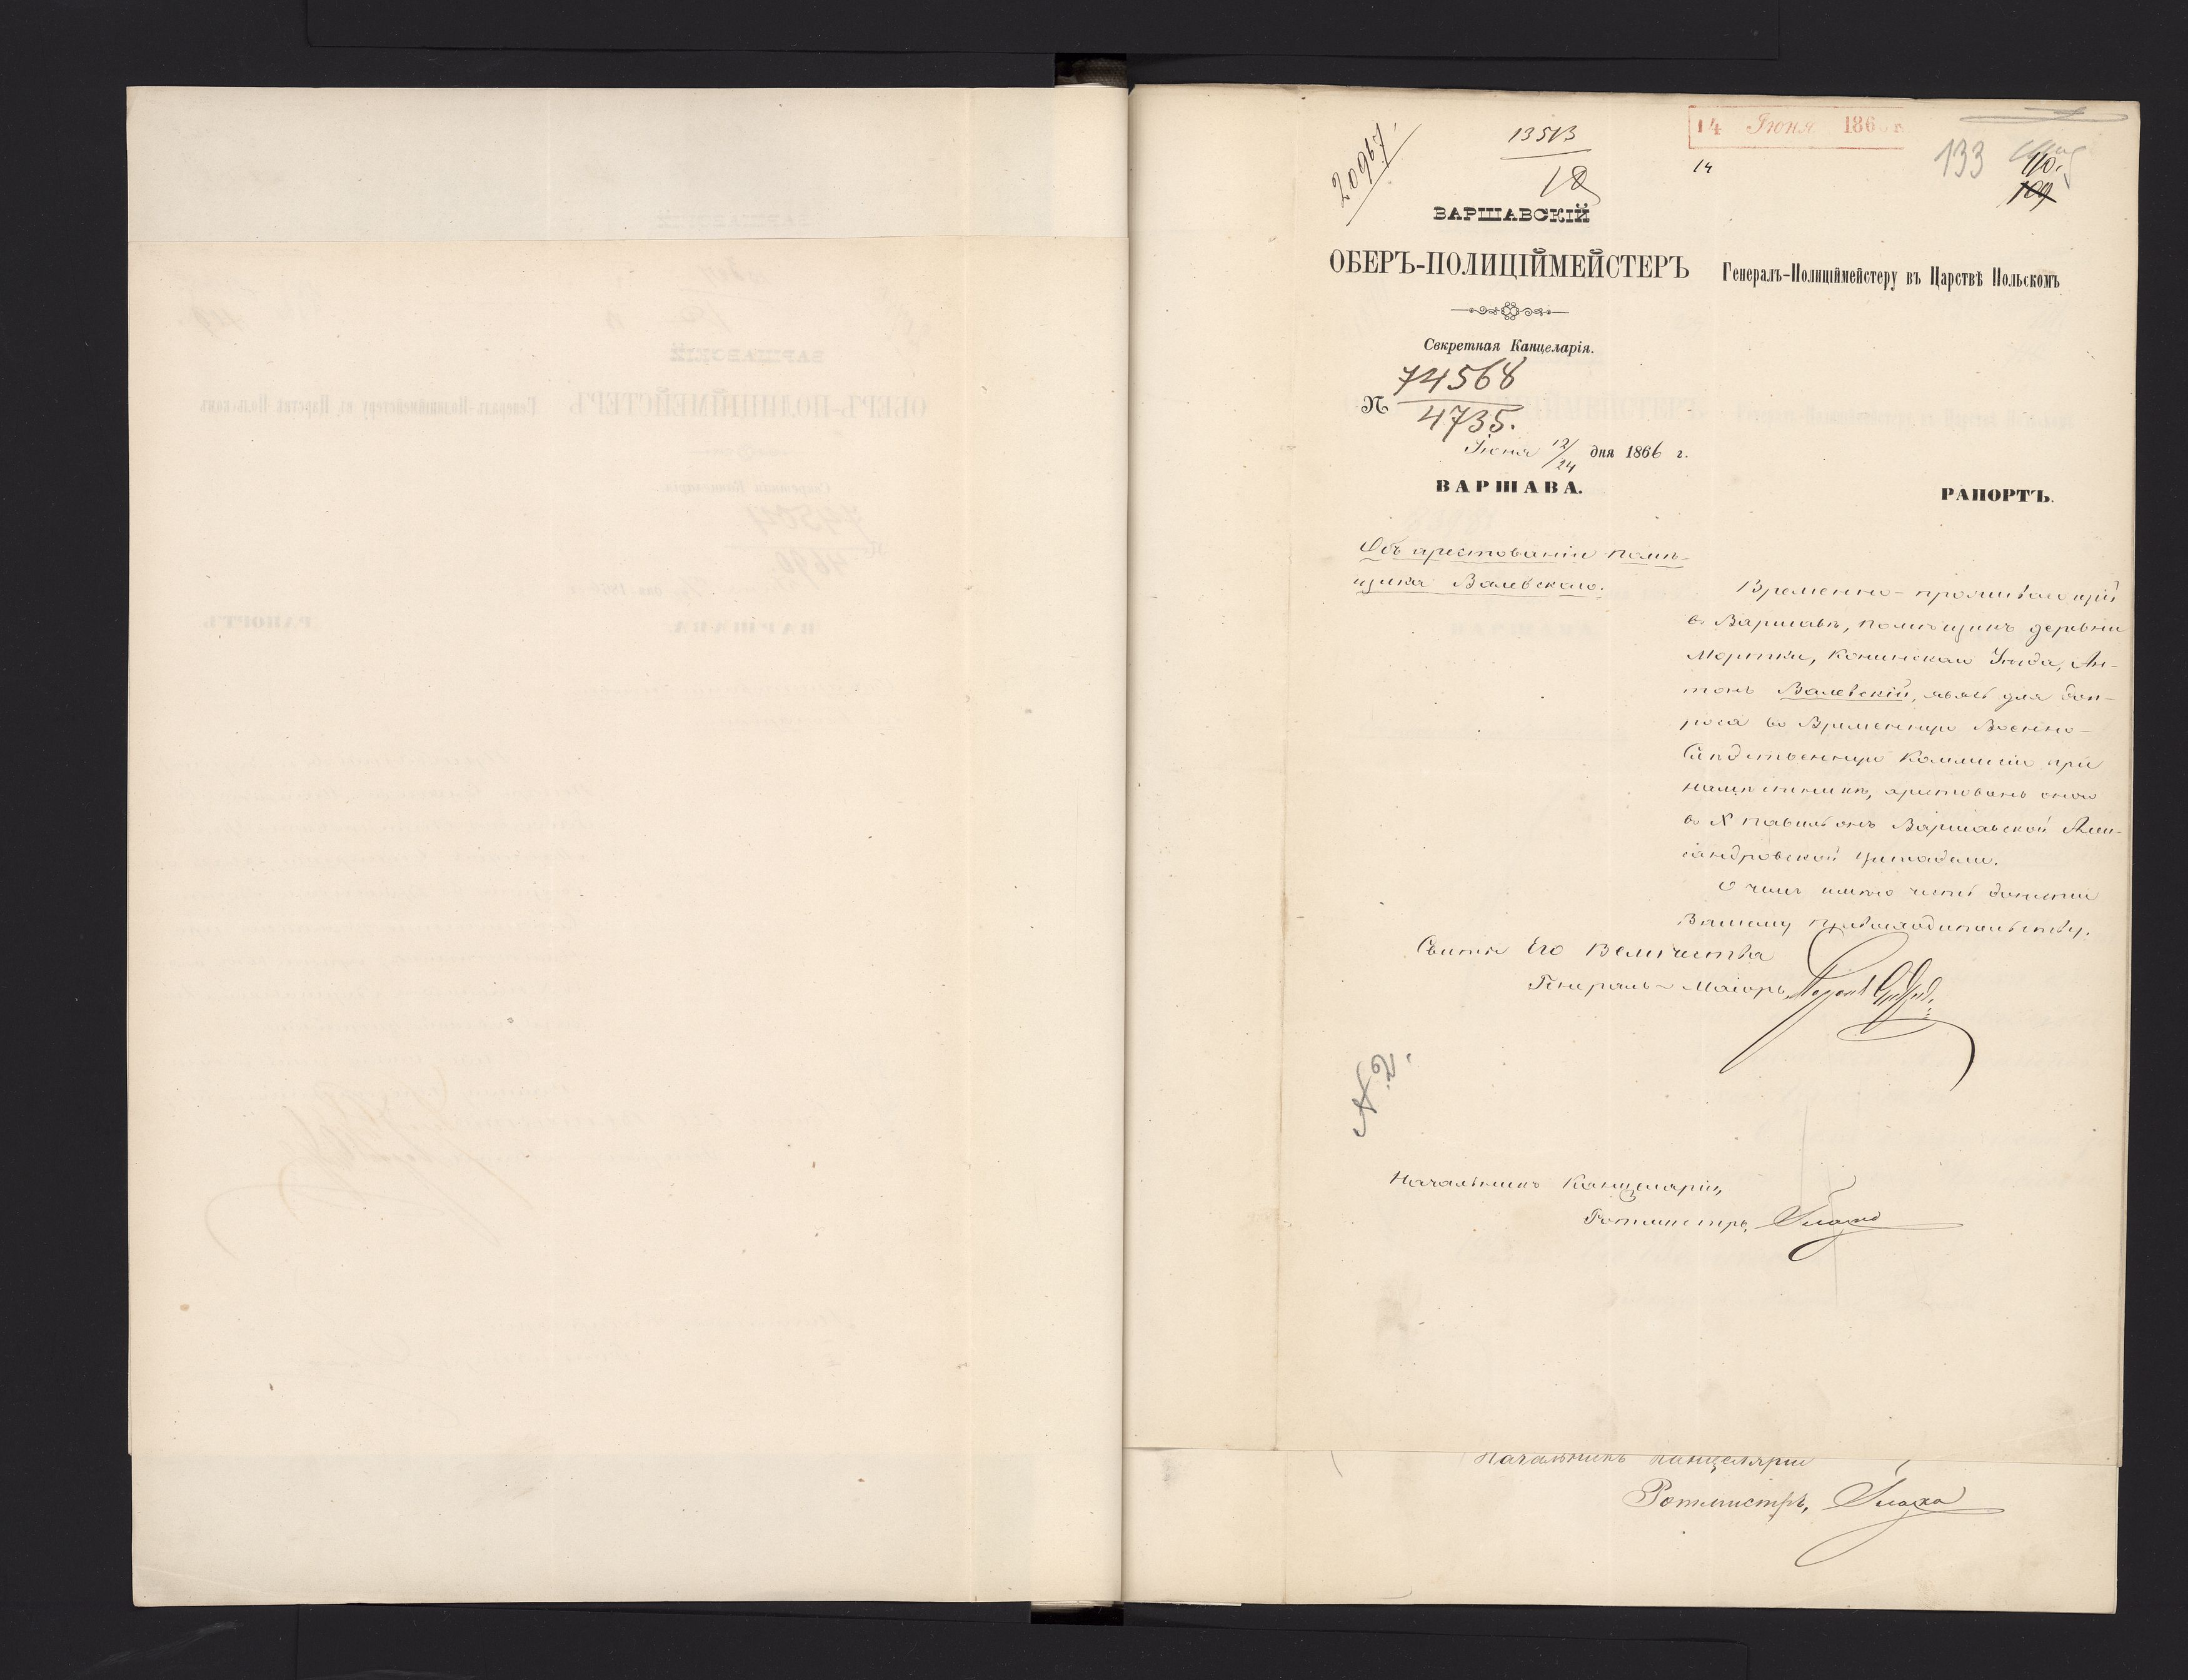 20967.
13513
18
14 Июня 186 г.
14
133
110.
109
ВАРШАВСКІЙ
ОБЕРЪ-ПОЛИЦІЙМЕЙСТЕРЪ
Генералъ-Полиціймейстеру въ Царствѣ Польскомъ
Секретная Канцелярія.
№ 74568
4735.
Іюня 12/24 дня 1866 г.
ВАРШАВА.
РАПОРТЪ.
Объ арестованіи помѣ-
щика Валевскаго.
Временно-проживающій
въ Варшавѣ, помѣщикъ деревни
Конинскаго Уѣзда, Ан-
тонъ Валевскій, для доп-
роса во Временную Военно-
Слѣдственную Коммисію при
Намѣстникѣ, арестованъ оною
въ X павильонъ Варшавской Алек-
сандровской Цитадели.
О чемъ имѣю честь донести
Вашему Превосходительству.
Свиты Его Величества
Генералъ-Маіоръ
№ 2.
Начальникъ Канцеляріи,
Ротмистръ,
Начальникъ Канцеляріи
Ротмистръ,